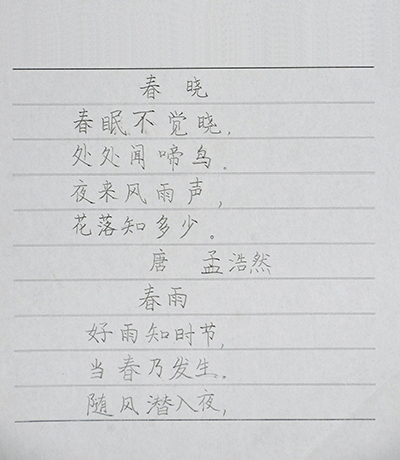 春 晓
春眠不觉晓，
处处闻啼鸟．
夜来风雨声，
花落知多少。
唐 孟浩然
春雨
好雨知时节，
当春乃发生．
随风潜入夜，